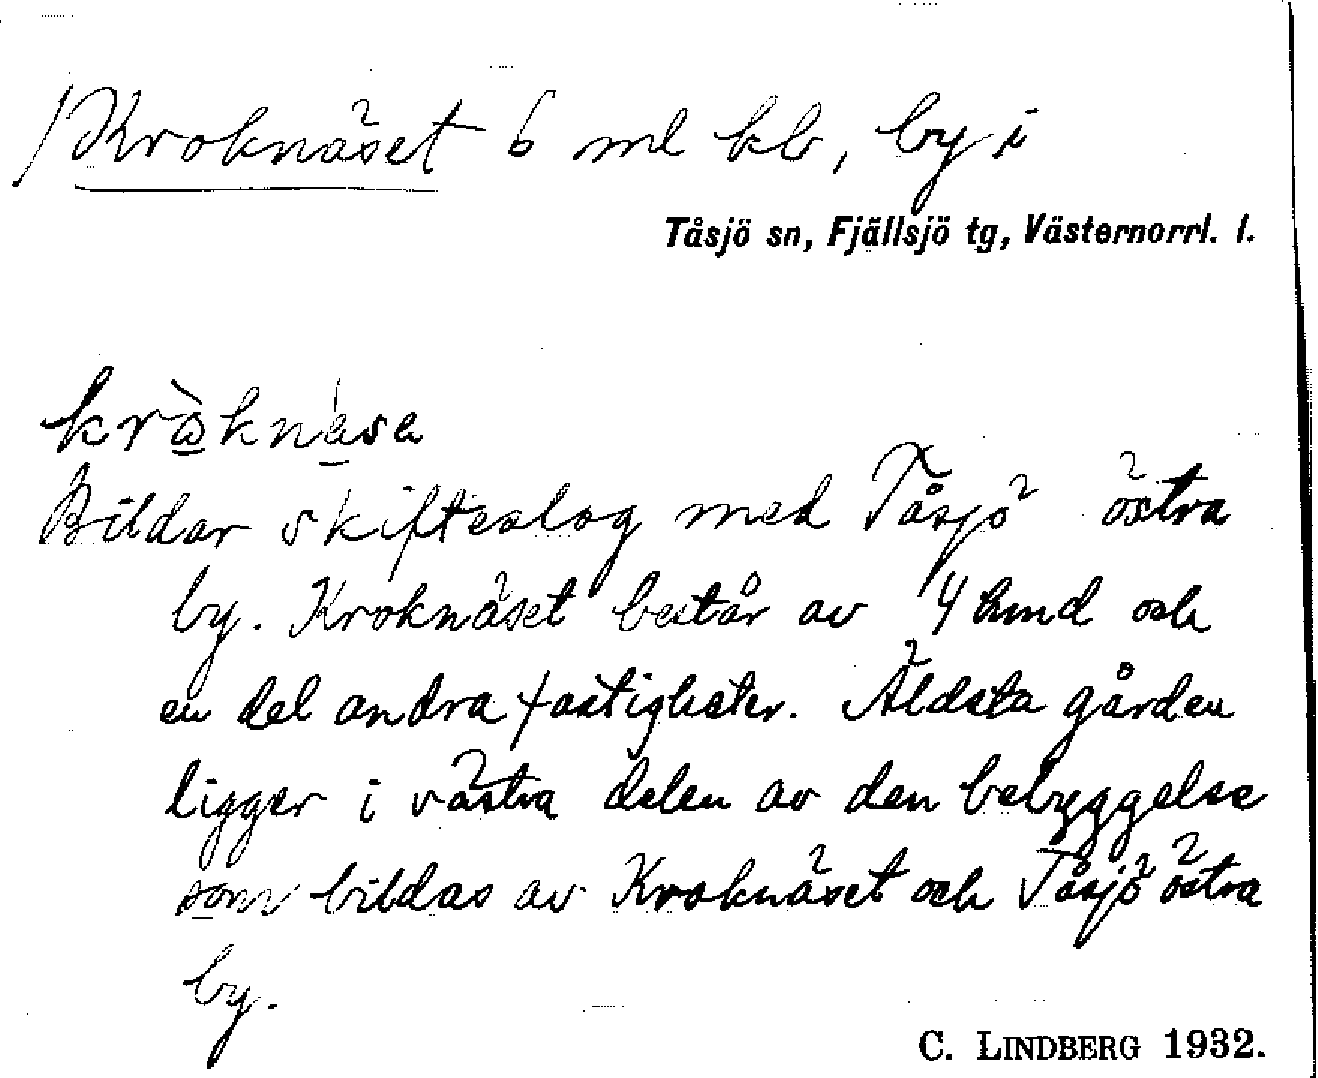 Kroknäset 6 ml kb, by i
Tåsjö sn, Fjällsjö tg, Västernorrl. l.
Bildar skifteslag med Tåsjö östra
by. Kroknäset består av 4 hmd och
en del andra fastigheter. Äldsta gården
ligger i västra delen av den bebyggelse
som bildas av Kroknäset och Tåsjö östra
by.
C. LINDBERG 1932.